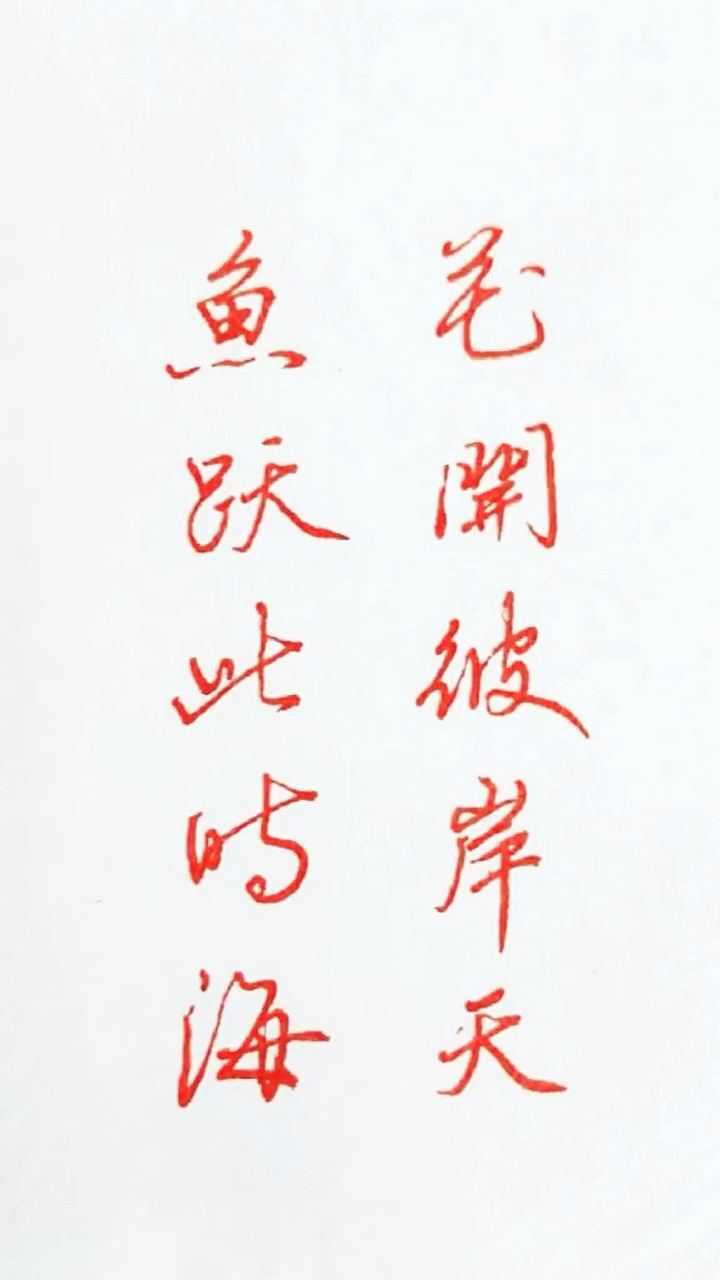 花開彼岸天
魚跃此时海